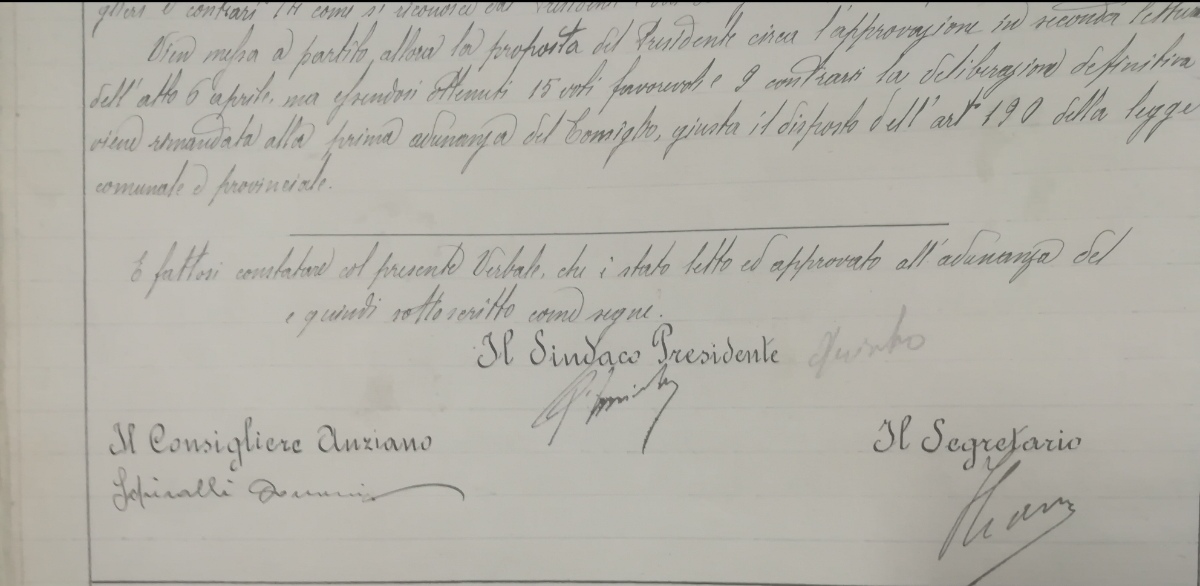 e contrari 14 come si riconosce dal Presidente
Vien messa a partito allora la proposta del Presidente circa l'approvazione in seconda lettura
dell'atto 6 aprile, ma essendosi ottenuti 15 voti favorevoli e 9 contrarii la deliberazione definitiva
viene rimandata alla prima adunanza del Consiglio, giusta il disposto dell'art 190 della legge
comunale e provinciale.
E fattosi constatare col presente Verbale, che è stato letto ed approvato all'adunanza del
e quindi sottoscritto come segue.
Il Sindaco Presidente
Il Consigliere Anziano
Il Segretario